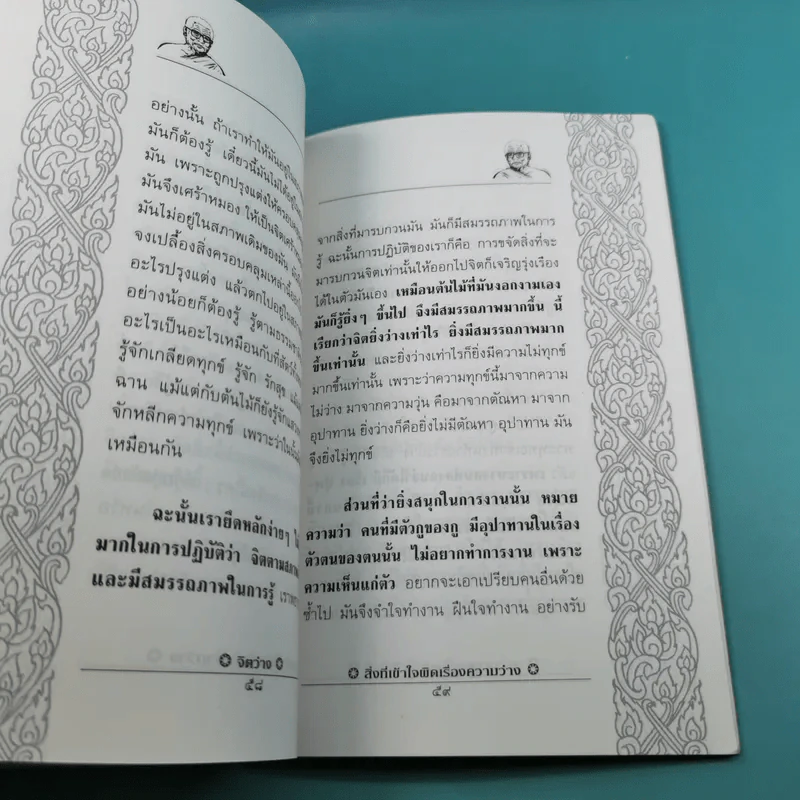 อย่างนั้น ถ้าเราทำให้มันอยู่ใน
มันก็ต้องรู้ เดี๋ยวนี้มันไม่ได้อยู่ใน
มัน เพราะถูกปรุงแต่งให้ครอบคลุม
มันจึงเศร้าหมอง ให้เป็นจิตเศร้า
มันไม่อยู่ในสภาพเดิมของมัน
จงเปลื้องสิ่งครอบคลุมเหล่านี้ออก
อะไรปรุงแต่ง แล้วตกไปอยู่ใน
อย่างน้อยก็ต้องรู้ รู้ตามธรรมชาติ
อะไรเป็นอะไรเหมือนกับที่สัตว์
รู้จักเกลียดทุกข์ รู้จัก รักสุข
ฉาน แม้แต่กับต้นไม้ก็ยังรู้จัก
จักหลีกความทุกข์ เพราะว่าใน
เหมือนกัน
ฉะนั้นเรายึดหลักง่ายๆ
มากในการปฏิบัติว่า จิตตามสภาพ
และมีสมรรถภาพในการรู้
✪ จิตว่าง ✪
๕๘
จากสิ่งที่มารบกวนมัน มันก็มีสมรรถภาพในการ
รู้ ฉะนั้นการปฏิบัติของเราก็คือ การขจัดสิ่งที่จะ
มารบกวนจิตเท่านั้นให้ออกไปจิตก็เจริญรุ่งเรือง
ได้ในตัวมันเอง เหมือนต้นไม้ที่มันงอกงามเอง
มันก็รู้ยิ่งๆ ขึ้นไป จึงมีสมรรถภาพมากขึ้น นี้
เรียกว่าจิตยิ่งว่างเท่าไร ยิ่งมีสมรรถภาพมาก
ขึ้นเท่านั้น และยิ่งว่างเท่าไรก็ยิ่งมีความไม่ทุกข์
มากขึ้นเท่านั้น เพราะว่าความทุกข์นี้มาจากความ
ไม่ว่าง มาจากความวุ่น คือมาจากตัณหา มาจาก
อุปาทาน ยิ่งว่างก็คือยิ่งไม่มีตัณหา อุปาทาน มัน
จึงยิ่งไม่ทุกข์
ส่วนที่ว่ายิ่งสนุกในการงานนั้น หมาย
ความว่า คนที่มีตัวกูของกู มีอุปาทานในเรื่อง
ตัวตนของตนนั้น ไม่อยากทำการงาน เพราะ
ความเห็นแก่ตัว อยากจะเอาเปรียบคนอื่นด้วย
ซ้ำไป มันจึงจำใจทำงาน ฝืนใจทำงาน อย่างรับ
✪ สิ่งที่เข้าใจผิดเรื่องความว่าง ✪
๕๙